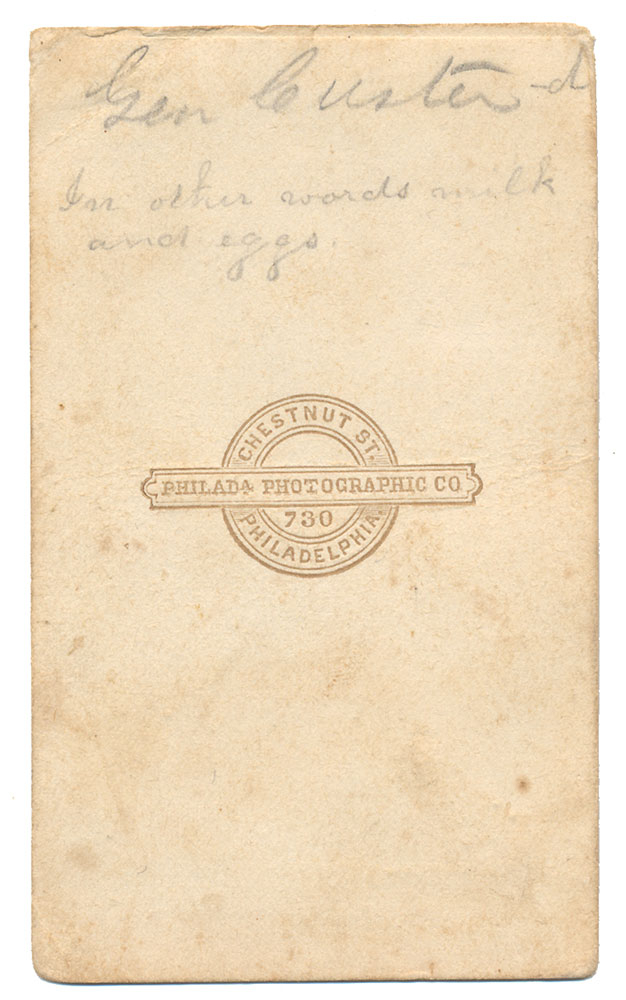 Gen Custer-d
In other words milk
and eggs.
CHESTNUT ST.
PHILADA PHOTOGRAPHIC CO.
730
PHILADELPHIA.